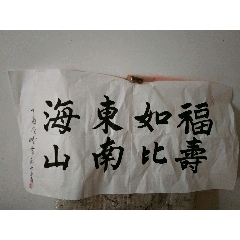 福壽
如比
東南
海山